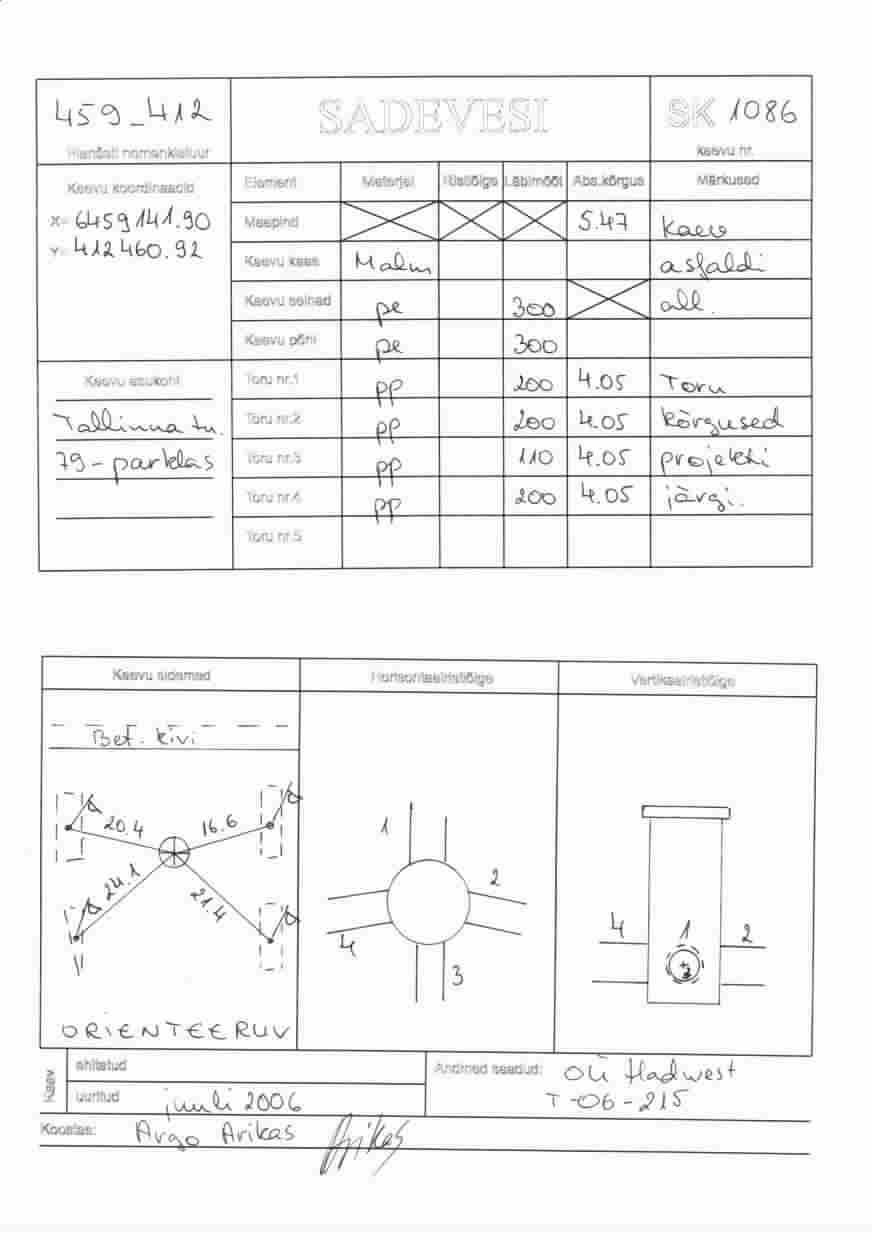 459_412
SADEVESI
SK 1086
Planšeti nomenklatuur
kaevu nr.
Kaevu koordinaadid
X= 6459141.90
Y= 412460.92
Element Materjal Ristlõige Läbimõõt Abs.kõrgus Märkused
Maapind 5.47 Kaev
Kaevu kaas Malm asfaldi
Kaevu seinad pe 300 all.
Kaevu põhi pe 300
Kaevu asukoht
Tallinna tn.
79-parklas
Toru nr.1 pp 200 4.05 Toru
Toru nr.2 pp 200 4.05 kõrgused
Toru nr.3 pp 110 4.05 projekti
Toru nr.4 pp 200 4.05 järgi.
Toru nr.5
Kaevu sidemed
Horisontaalristlõige
Vertikaalristlõige
Bet. kivi
20.4
16.6
24.1
21.4
ORIENTEERUV
1
2
4
3
4
1
2
3
Kaev
ehitatud
uuritud juuli 2006
Andmed saadud: OÜ Hadwest
T-06-215
Koostas: Argo Arikas Arikas